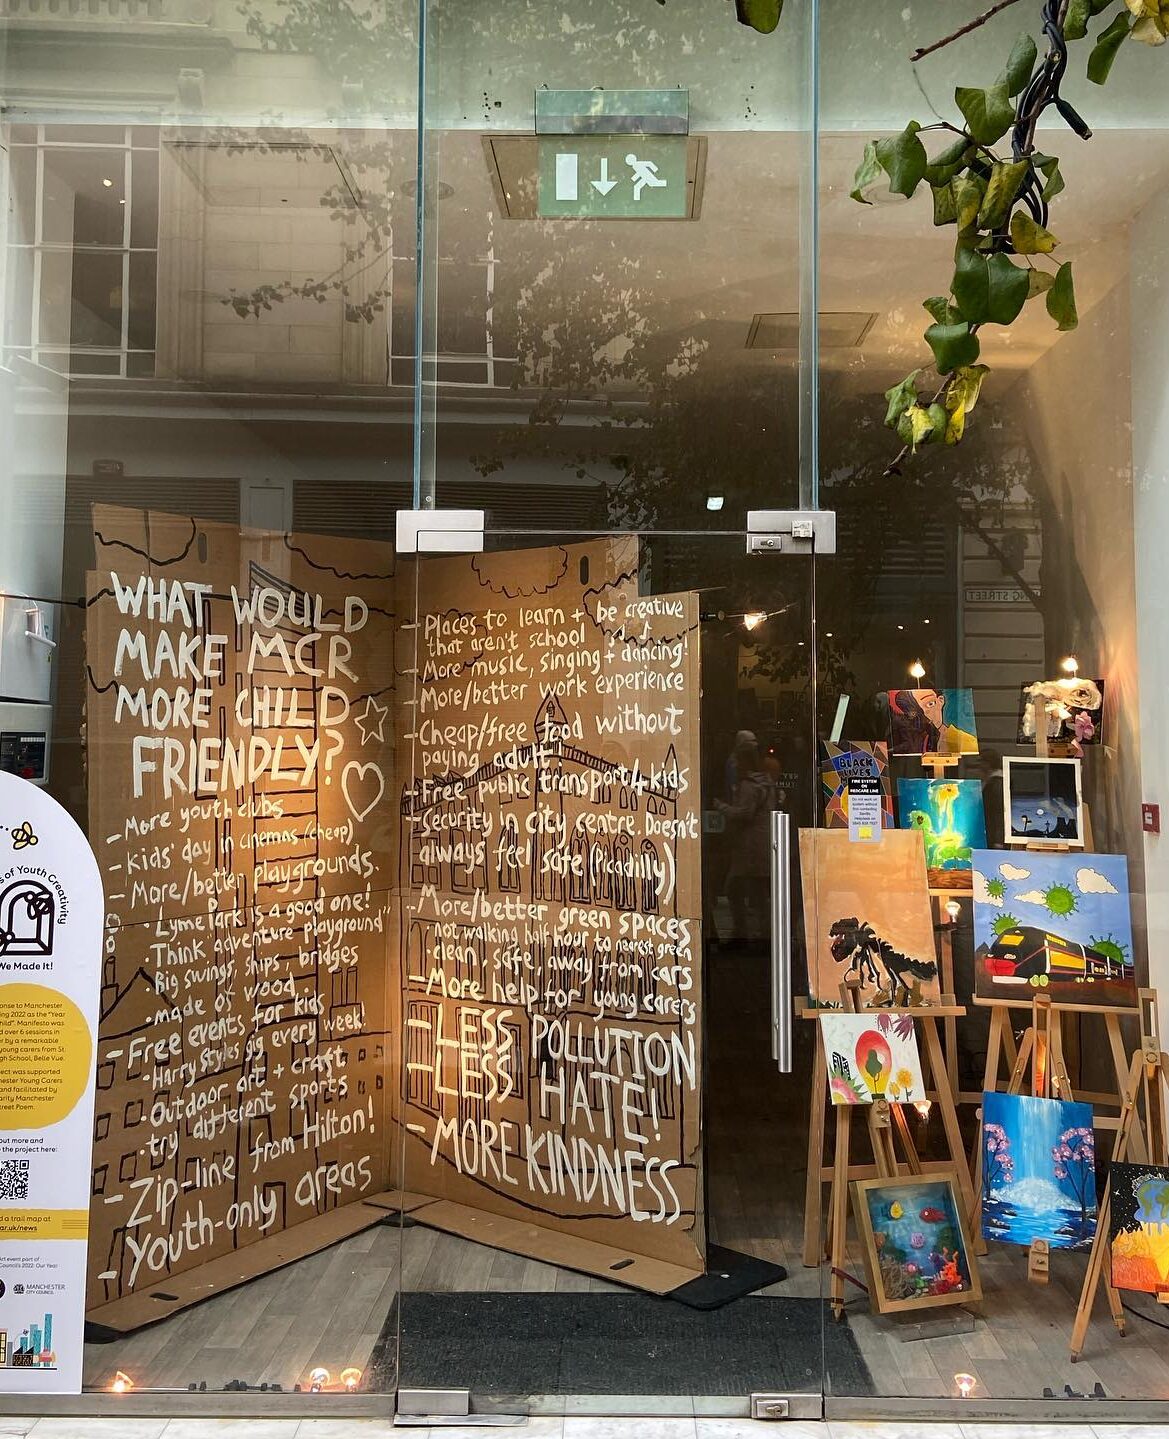 WHAT WOULD
MAKE MCR
MORE CHILD
FRIENDLY?
- More youth clubs
- Kids' day in cinemas (cheap)
- More/better playgrounds.
• Lyme Park is a good one!
• Think "adventure playground"
• Big swings, ships, bridges
• made of wood.
- Free events for kids
• Harry Styles gig every week!
• Outdoor art + craft
• try different sports
- Zip-line from Hilton!
- Youth-only areas
- Places to learn + be creative
that aren't school
- More music, singing + dancing!
- More/better work experience
- Cheap/free food without
paying adult
- Free public transport 4 kids
- security in city centre. Doesn't
always feel safe (Picadilly)
- More/better green spaces
• not walking half hour to nearest green
• clean, safe, away from cars
- More help for young carers
- LESS POLLUTION
- LESS HATE!
- MORE KINDNESS
s of Youth Creativity
We Made It!
onse to Manchester
ing 2022 as the "Year
hild". Manifesto was
d over 6 sessions in
er by a remarkable
young carers from St.
gh School, Belle Vue.
ect was supported
hester Young Carers
and facilitated by
arity Manchester
treet Poem.
out more and
e the project here:
d a trail map at
ar.uk/news
Art event part of
Council's 2022: Our Year
MANCHESTER
CITY COUNCIL
BLACK
LIVES
FIRE SYSTEM
ON
REDCARE LINE
Do not work on
system without
first contacting
NG STREET